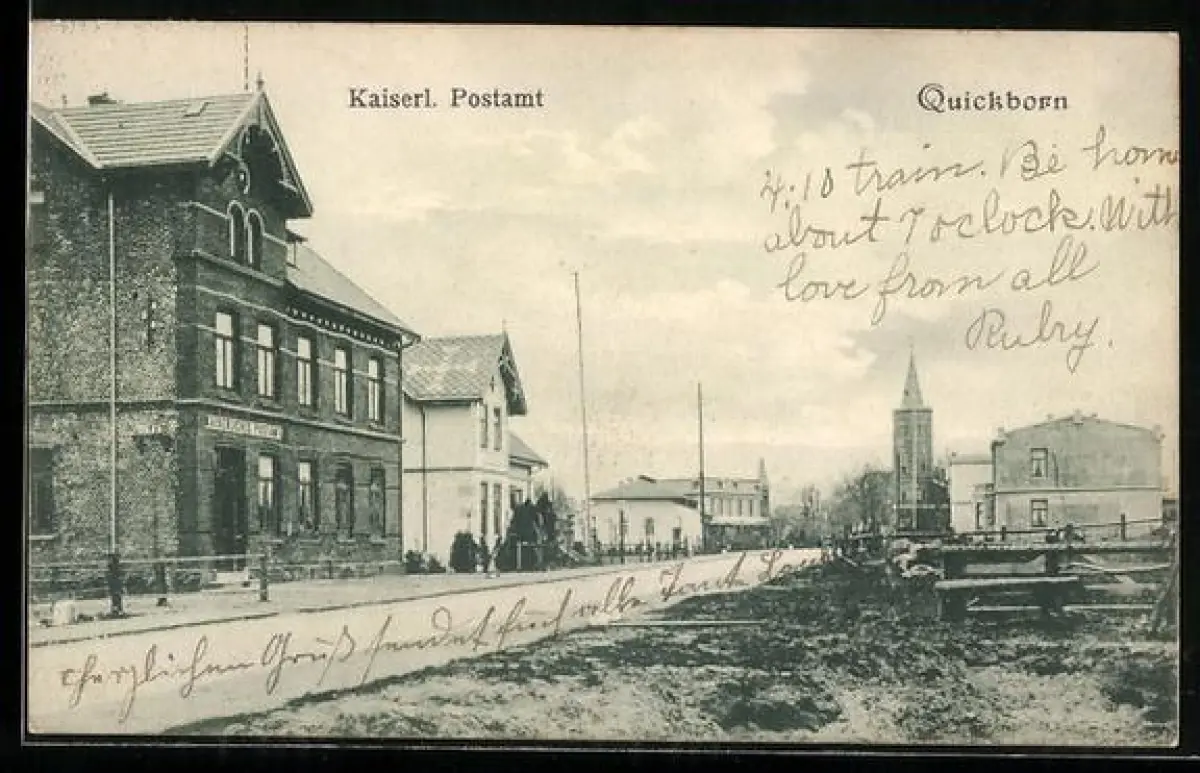 Kaiserl. Postamt
Quickborn
4:10 train. Be home
about 7 oclock. With
love from all
Ruby.
KAISERLICHES POSTAMT
Herzlichen Gruß sendet Euch